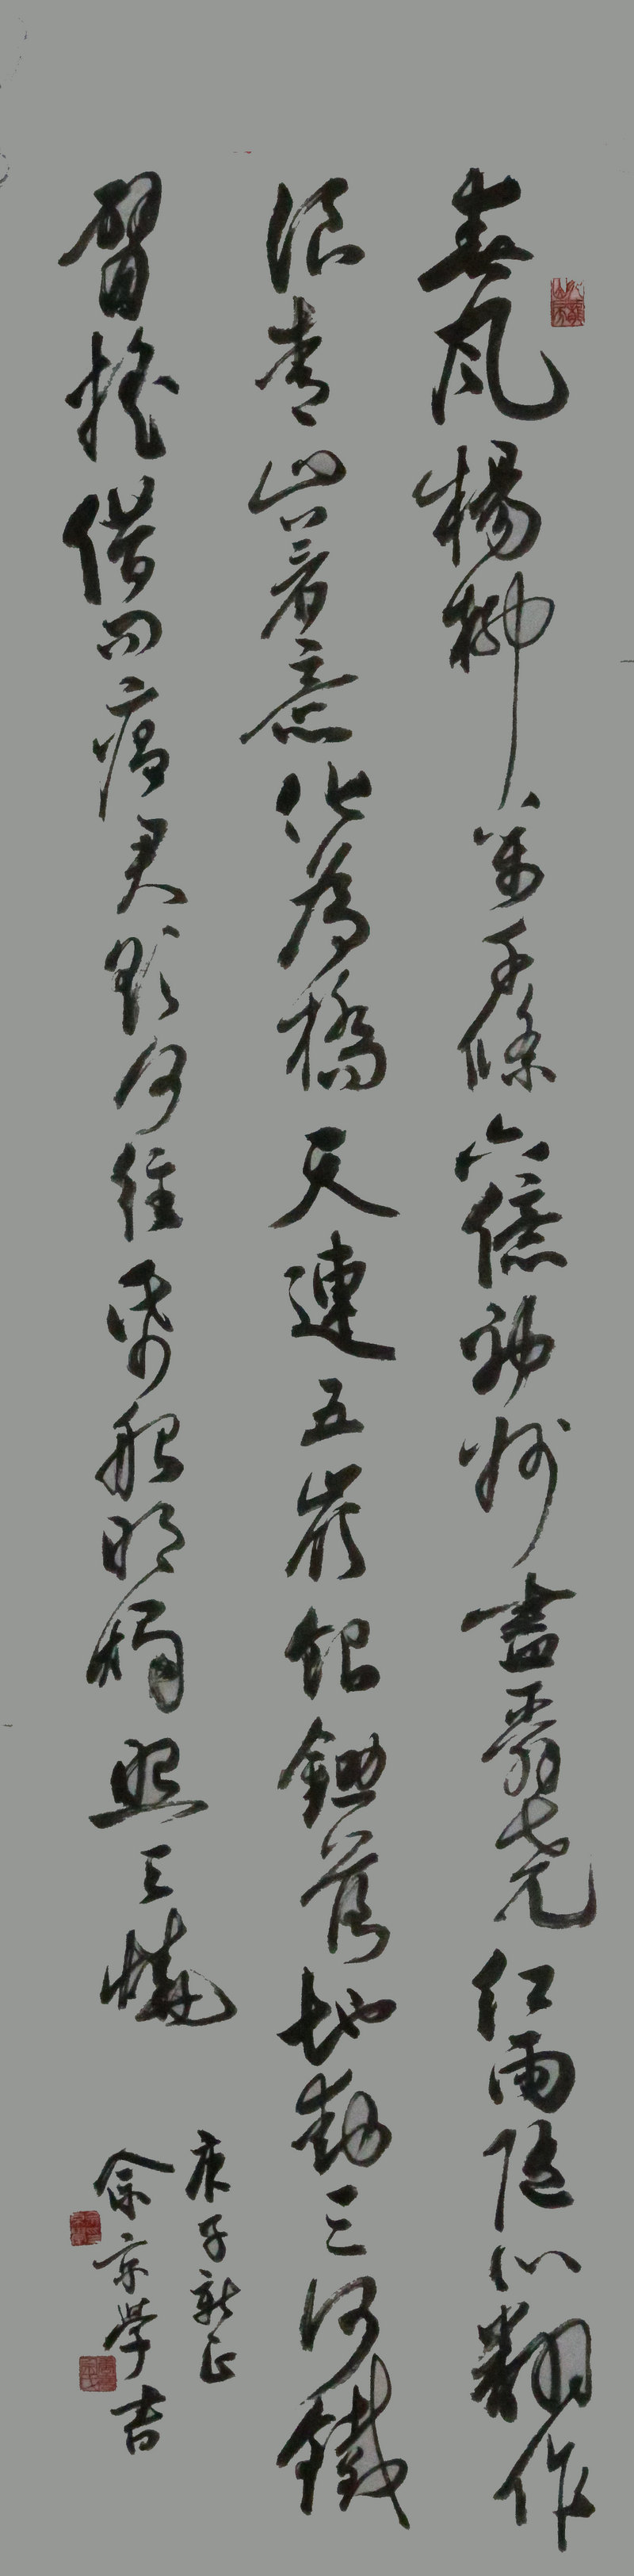 春風楊柳萬千條六億神州盡舜堯紅雨隨心翻作
浪青山着意化為橋天連五嶺銀鋤落地動三河鐵
臂搖借問瘟君欲何往帋船明燭照天燒
庚子新正
余京學書